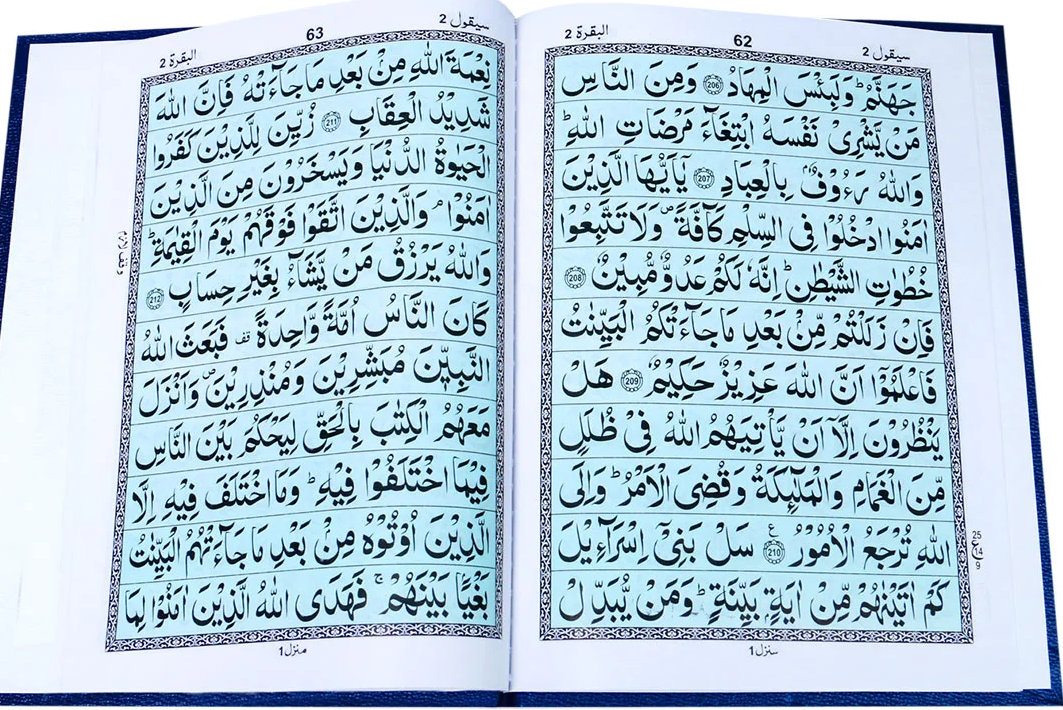 سيقول 2
62
البقرة 2
جَهَنَّمُ ؕ وَلَبِئْسَ الْمِهَادُ 206 وَمِنَ النَّاسِ
مَنْ يَّشْرِیْ نَفْسَهُ ابْتِغَآءَ مَرْضَاتِ اللّٰهِ ؕ
وَاللّٰهُ رَءُوْفٌۢ بِالْعِبَادِ 207 يٰۤاَيُّهَا الَّذِيْنَ
اٰمَنُوا ادْخُلُوْا فِی السِّلْمِ كَآفَّةً ۪ وَلَا تَتَّبِعُوْا
خُطُوٰتِ الشَّيْطٰنِ ؕ اِنَّهٗ لَكُمْ عَدُوٌّ مُّبِيْنٌ 208
فَاِنْ زَلَلْتُمْ مِّنْۢ بَعْدِ مَا جَآءَتْكُمُ الْبَيِّنٰتُ
فَاعْلَمُوْۤا اَنَّ اللّٰهَ عَزِيْزٌ حَكِيْمٌ 209 هَلْ
يَنْظُرُوْنَ اِلَّاۤ اَنْ يَّاْتِيَهُمُ اللّٰهُ فِیْ ظُلَلٍ
مِّنَ الْغَمَامِ وَالْمَلٰٓئِكَةُ وَقُضِیَ الْاَمْرُ ؕ وَاِلَی
اللّٰهِ تُرْجَعُ الْاُمُوْرُ 210 ع سَلْ بَنِیْۤ اِسْرَآءِيْلَ
كَمْ اٰتَيْنٰهُمْ مِّنْ اٰيَةٍۭ بَيِّنَةٍ ؕ وَمَنْ يُّبَدِّلْ
25
ع
14
9
منزل 1
سيقول 2
63
البقرة 2
نِعْمَةَ اللّٰهِ مِنْۢ بَعْدِ مَا جَآءَتْهُ فَاِنَّ اللّٰهَ
شَدِيْدُ الْعِقَابِ 211 زُيِّنَ لِلَّذِيْنَ كَفَرُوا
الْحَيٰوةُ الدُّنْيَا وَيَسْخَرُوْنَ مِنَ الَّذِيْنَ
اٰمَنُوْا ۘ وَالَّذِيْنَ اتَّقَوْا فَوْقَهُمْ يَوْمَ الْقِيٰمَةِ ؕ
وَاللّٰهُ يَرْزُقُ مَنْ يَّشَآءُ بِغَيْرِ حِسَابٍ 212
كَانَ النَّاسُ اُمَّةً وَّاحِدَةً قف فَبَعَثَ اللّٰهُ
النَّبِيّٖنَ مُبَشِّرِيْنَ وَمُنْذِرِيْنَ ۪ وَاَنْزَلَ
مَعَهُمُ الْكِتٰبَ بِالْحَقِّ لِيَحْكُمَ بَيْنَ النَّاسِ
فِيْمَا اخْتَلَفُوْا فِيْهِ ؕ وَمَا اخْتَلَفَ فِيْهِ اِلَّا
الَّذِيْنَ اُوْتُوْهُ مِنْۢ بَعْدِ مَا جَآءَتْهُمُ الْبَيِّنٰتُ
بَغْيًۢا بَيْنَهُمْ ۚ فَهَدَی اللّٰهُ الَّذِيْنَ اٰمَنُوْا لِمَا
منزل 1